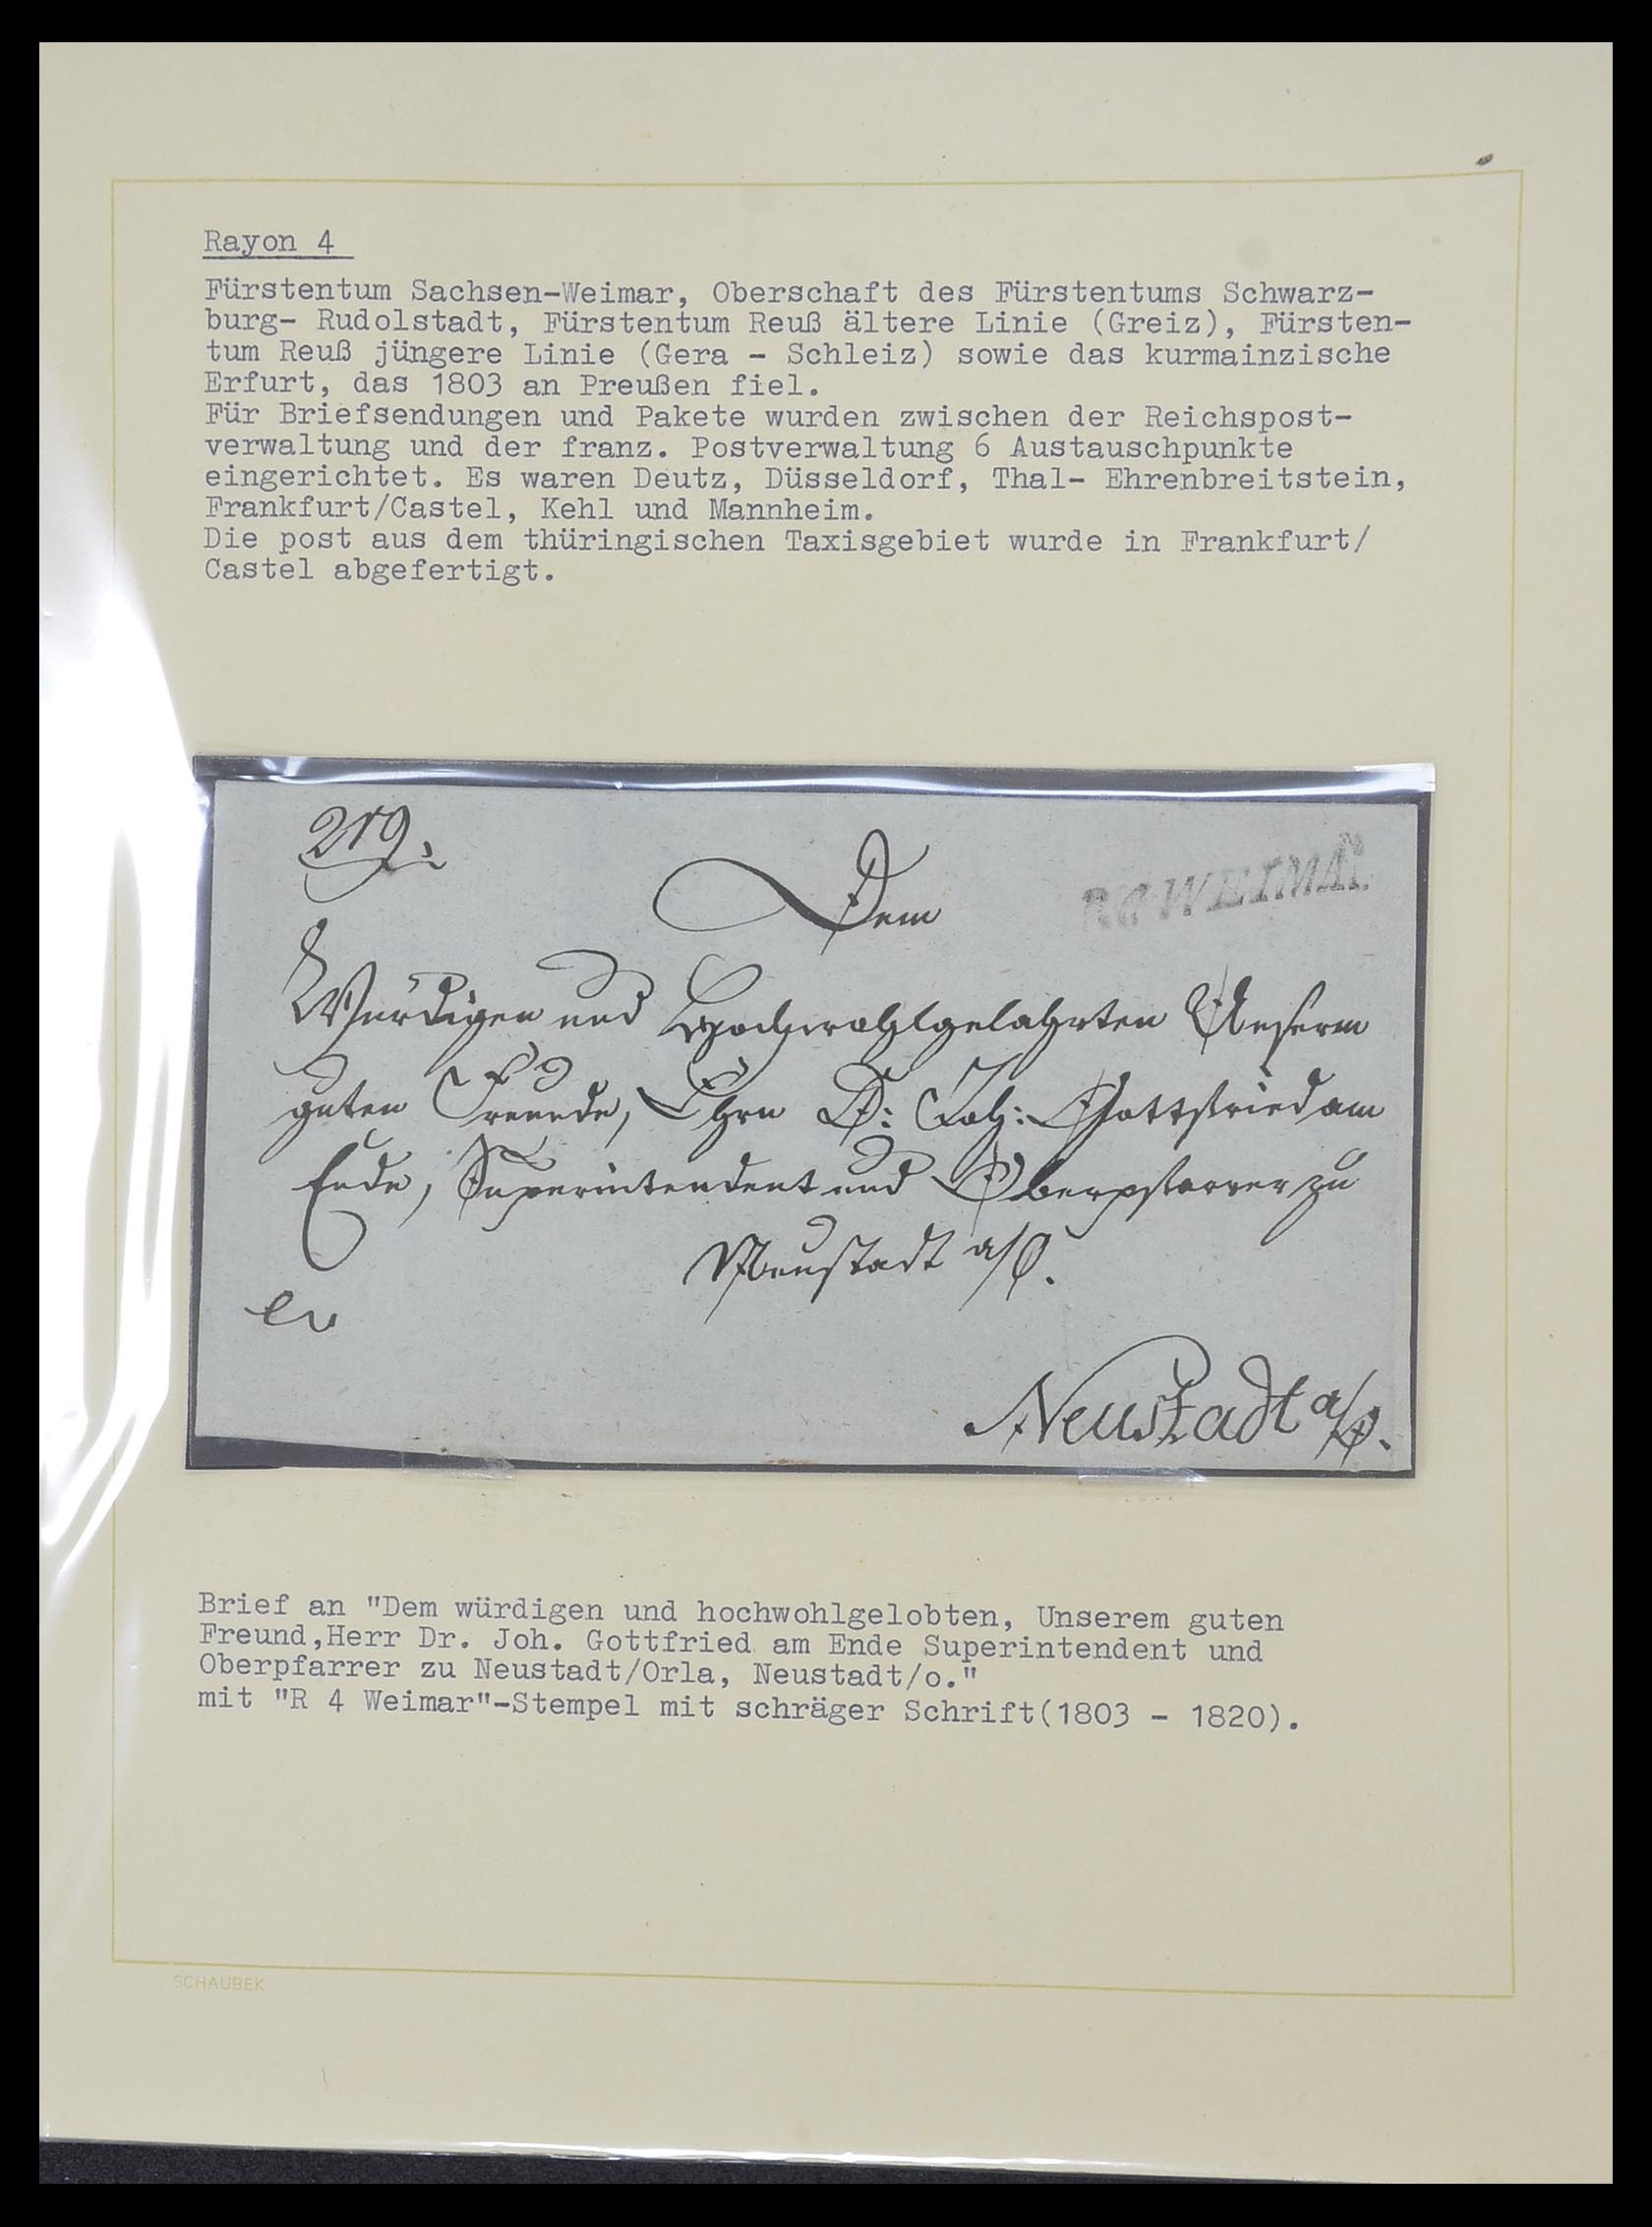 Rayon 4
Fürstentum Sachsen-Weimar, Oberschaft des Fürstentums Schwarz-
burg- Rudolstadt, Fürstentum Reuß ältere Linie (Greiz), Fürsten-
tum Reuß jüngere Linie (Gera - Schleiz) sowie das kurmainzische
Erfurt, das 1803 an Preußen fiel.
Für Briefsendungen und Pakete wurden zwischen der Reichspost-
verwaltung und der franz. Postverwaltung 6 Austauschpunkte
eingerichtet. Es waren Deutz, Düsseldorf, Thal- Ehrenbreitstein,
Frankfurt/Castel, Kehl und Mannheim.
Die post aus dem thüringischen Taxisgebiet wurde in Frankfurt/
Castel abgefertigt.
Dem
R4 WEIMAR.
Würdigen und Hochwohlgelahrten Unserm
guten Freunde, Ehrn D: Joh: Gottfried am
Ende, Superintendent und Oberpfarrer zu
Neustadt a/O.
Neustadt a/O.
Brief an "Dem würdigen und hochwohlgelobten, Unserem guten
Freund,Herr Dr. Joh. Gottfried am Ende Superintendent und
Oberpfarrer zu Neustadt/Orla, Neustadt/o."
mit "R 4 Weimar"-Stempel mit schräger Schrift(1803 - 1820).
SCHAUBEK